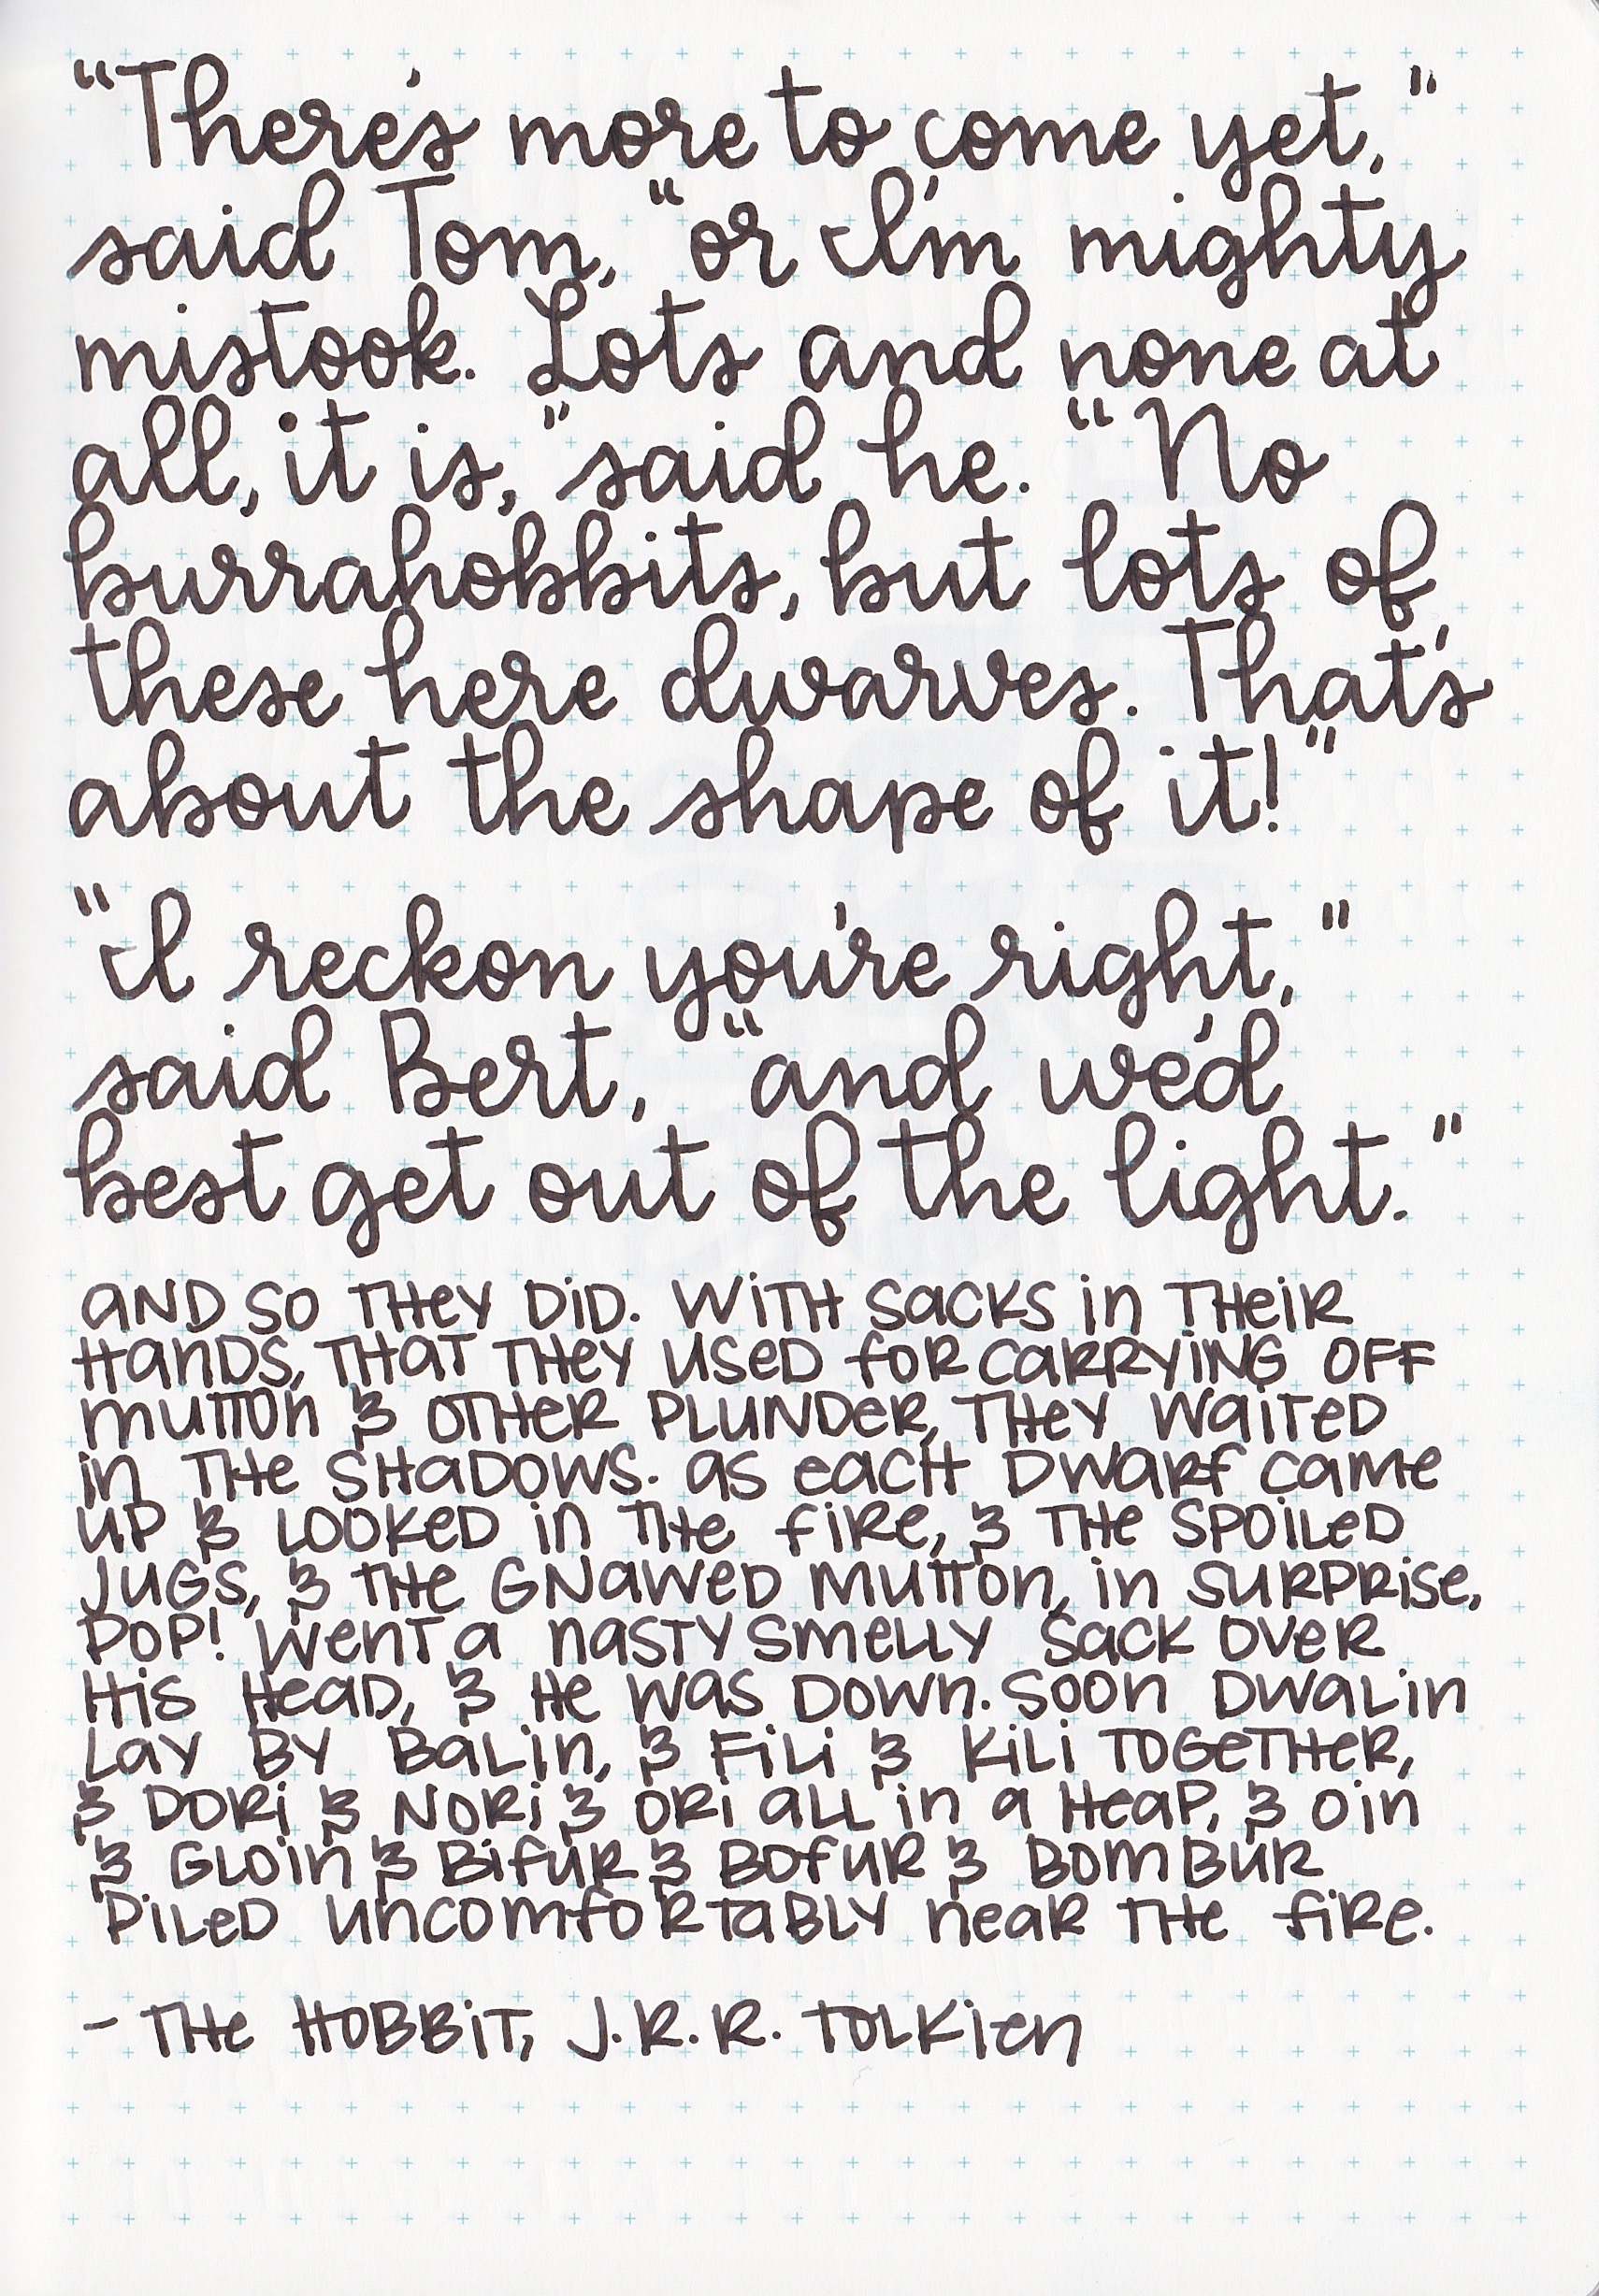 "There's more to come yet,"
said Tom, "or I'm mighty
mistook. Lots and none at
all, it is," said he. "No
burrahobbits, but lots of
these here dwarves. That's
about the shape of it!"
"I reckon you're right,"
said Bert, "and we'd
best get out of the light."
AND SO THEY DID. WITH SACKS IN THEIR
HANDS, THAT THEY USED FOR CARRYING OFF
MUTTON & OTHER PLUNDER, THEY WAITED
IN THE SHADOWS. AS EACH DWARF CAME
UP & LOOKED IN THE FIRE, & THE SPOILED
JUGS, & THE GNAWED MUTTON, IN SURPRISE,
POP! WENT A NASTY SMELLY SACK OVER
HIS HEAD, & HE WAS DOWN. SOON DWALIN
LAY BY BALIN, & FILI & KILI TOGETHER,
& DORI & NORI & ORI ALL IN A HEAP, & OIN
& GLOIN & BIFUR & BOFUR & BOMBUR
PILED UNCOMFORTABLY NEAR THE FIRE.
- THE HOBBIT, J.R.R. TOLKIEN